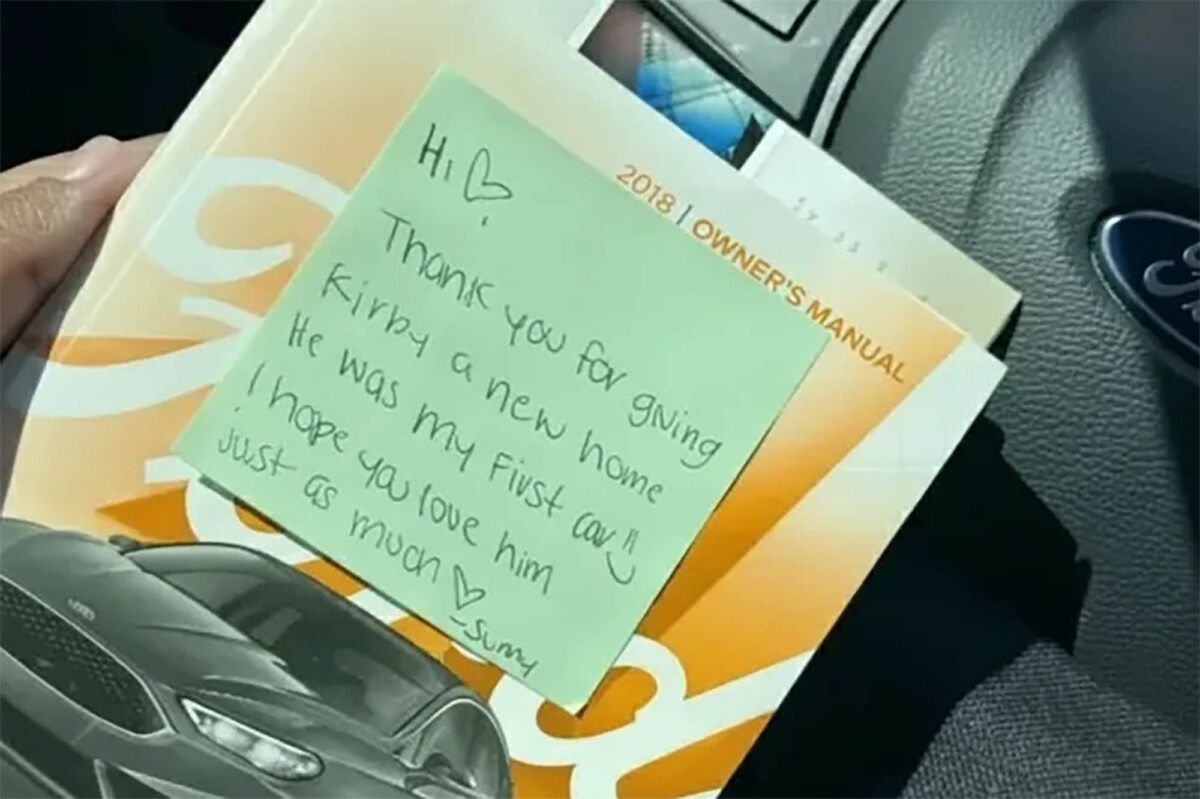 2018 | OWNER'S MANUAL
Hi ♡
Thank you for giving
Kirby a new home
He was my first car
I hope you love him
just as much ♡
-Sunny